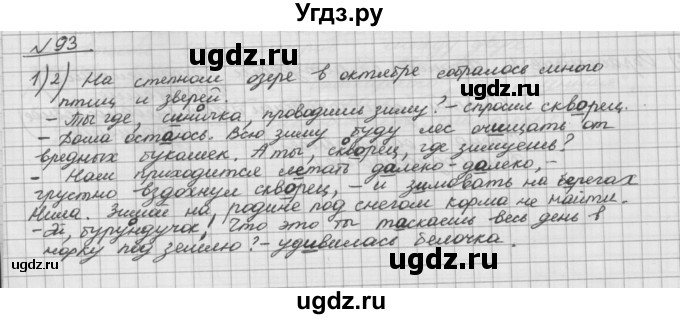 Угдз.ру
№ 93
ugdz.ru ugdz.ru
1) 2) На степном озере в октябре собралось много
птиц и зверей.
ugdz.ru ugdz.ru
- Ты где, синичка, проводишь зиму? - спросил скворец.
- Дома остаюсь. Всю зиму буду лес очищать от
ugdz.ru
вредных букашек. А ты, скворец, где зимуешь?
- Нам приходится летать далеко-далеко, -
грустно вздохнул скворец, - и зимовать на берегах
Нила. Зимой на родине под снегом корма не найти.
ugdz.ru ugdz.ru
- Эй, бурундучок! Что это ты таскаешь весь день в
норку под землю? - удивилась белочка.
ugdz.ru ugdz.ru
ugdz.ru